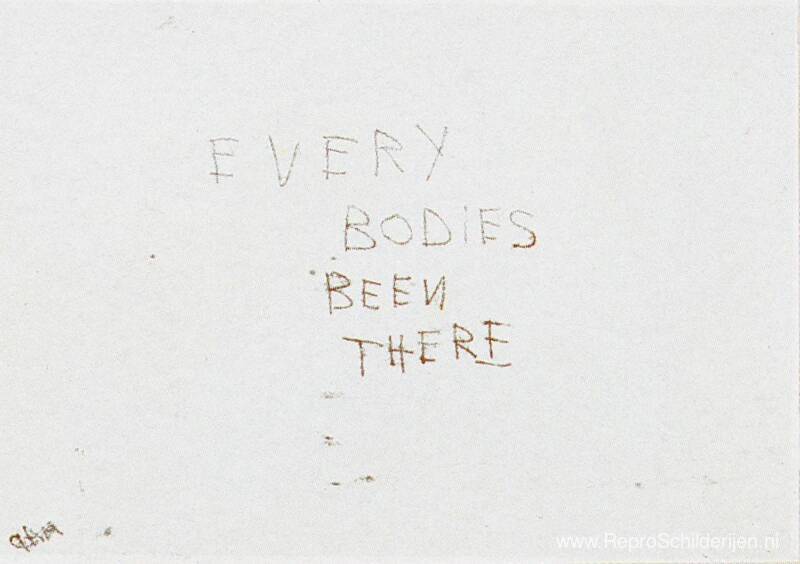 EVERY
BODiES
BEEN
THERE
www.ReproSchilderijen.nl